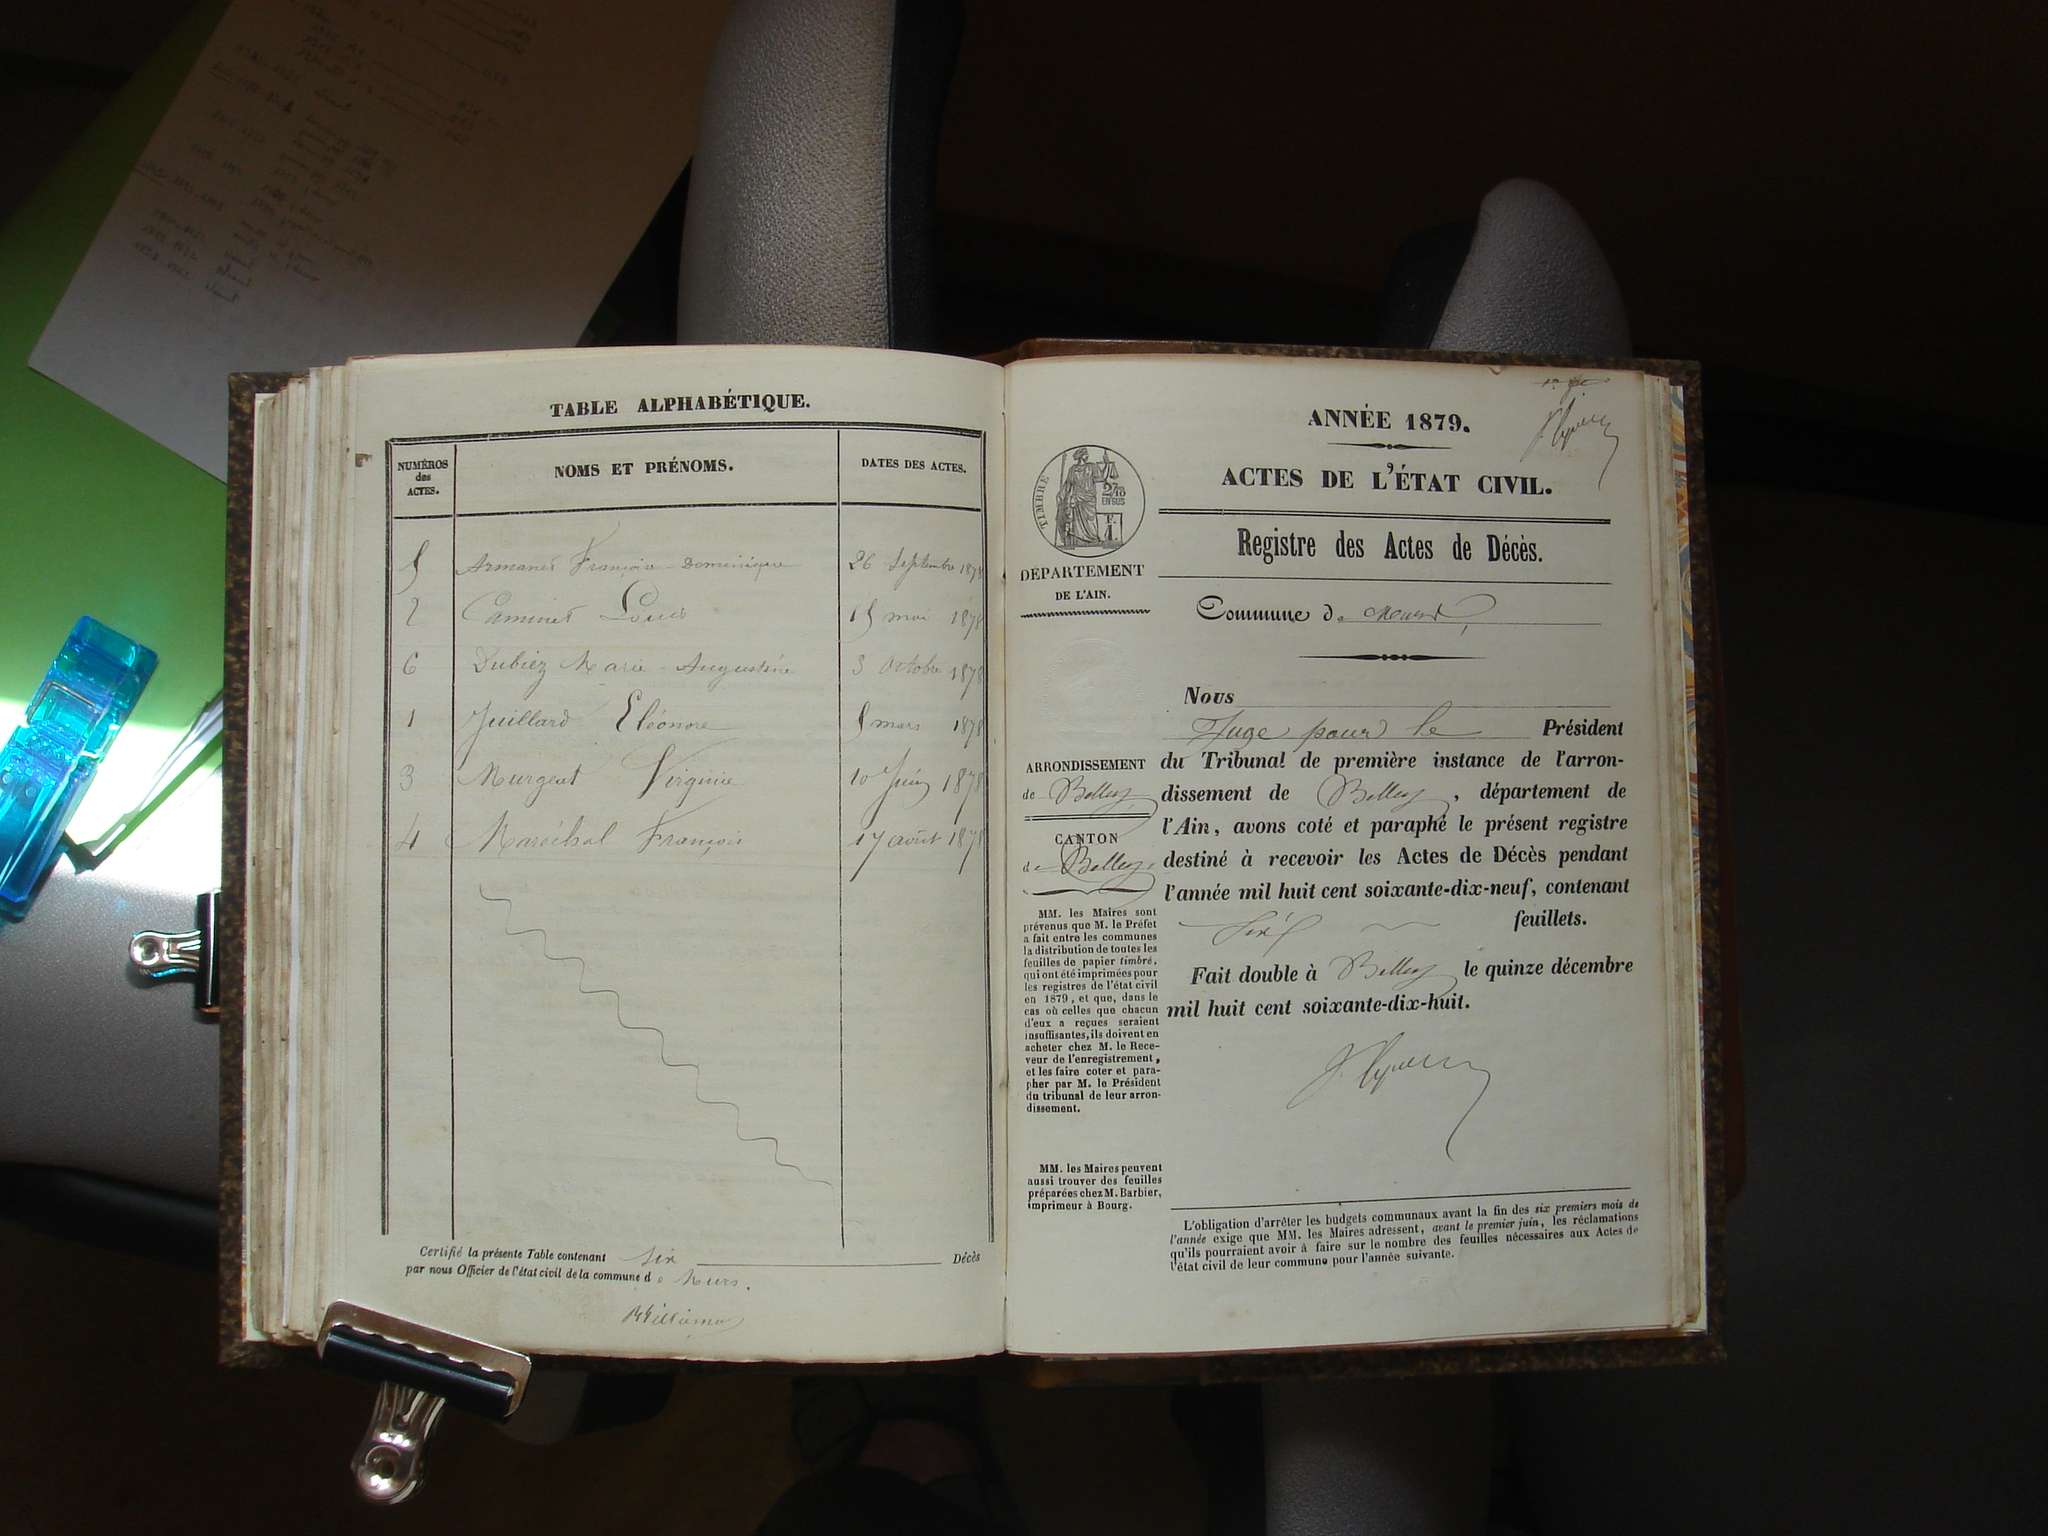 TABLE ALPHABÉTIQUE.
NUMÉROS des ACTES. NOMS ET PRÉNOMS. DATES DES ACTES.
5 Armanet François-Dominique 26 Septembre 1878
2 Caminet Louis 15 mai 1878
6 Dubiez Marie-Augustine 3 octobre 1878
1 Juillard Eléonore 5 mars 1878
3 Murgeat Virginie 10 Juin 1878
4 Maréchal François 17 août 1878
Certifié la présente Table contenant six Décès
par nous Officier de l'état civil de la commune de
ANNÉE 1879.
ACTES DE L'ÉTAT CIVIL.
Registre des Actes de Décès.
TIMBRE
2/10
EN SUS
F.
1.
DÉPARTEMENT
DE L'AIN.
Commune d
Nous
Juge pour le Président
du Tribunal de première instance de l'arron-
dissement de Belley, département de
l'Ain, avons coté et paraphé le présent registre
destiné à recevoir les Actes de Décès pendant
l'année mil huit cent soixante-dix-neuf, contenant
six feuillets.
Fait double à Belley le quinze décembre
mil huit cent soixante-dix-huit.
ARRONDISSEMENT
de Belley
CANTON
de Belley
MM. les Maires sont
prévenus que M. le Préfet
a fait entre les communes
la distribution de toutes les
feuilles de papier timbré,
qui ont été imprimées pour
les registres de l'état civil
en 1879, et que, dans le
cas où celles que chacun
d'eux a reçues seraient
insuffisantes, ils doivent en
acheter chez M. le Rece-
veur de l'enregistrement,
et les faire coter et para-
pher par M. le Président
du tribunal de leur arron-
dissement.
MM. les Maires peuvent
aussi trouver des feuilles
préparées chez M. Barbier,
imprimeur à Bourg.
L'obligation d'arrêter les budgets communaux avant la fin des six premiers mois de
l'année exige que MM. les Maires adressent, avant le premier juin, les réclamations
qu'ils pourraient avoir à faire sur le nombre des feuilles nécessaires aux Actes de
l'état civil de leur commune pour l'année suivante.